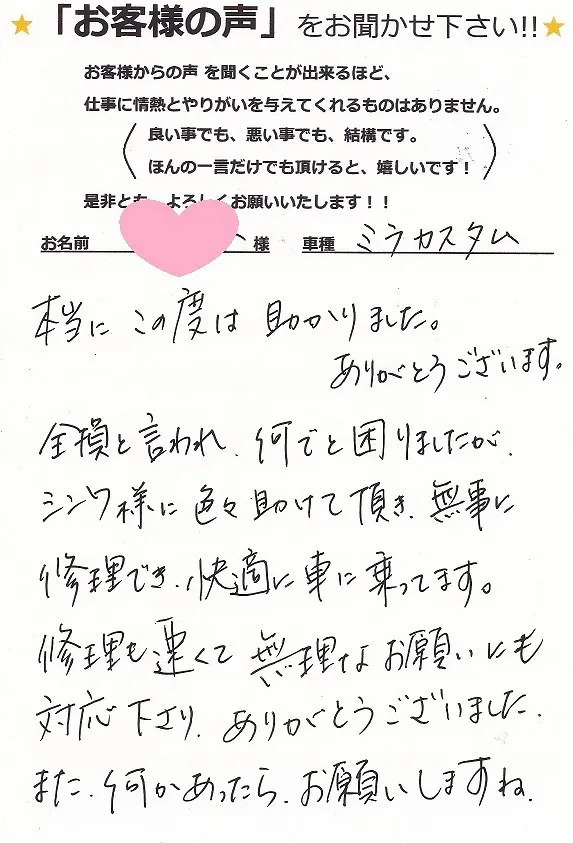 「お客様の声」をお聞かせ下さい!!
お客様からの声 を聞くことが出来るほど、
仕事に情熱とやりがいを与えてくれるものはありません。
良い事でも、悪い事でも、結構です。
ほんの一言だけでも頂けると、嬉しいです！
是非とも、よろしくお願いいたします！！
お名前 様 車種 ミラカスタム
本当に この度は 助かりました。
ありがとうございます。
全損と言われ、何でと困りましたが、
シンワ様に色々助けて頂き、無事に
修理でき、快適に車に乗ってます。
修理も速くて 無理な お願いにも
対応下さり、ありがとうございました。
また、何かあったら、お願いしますね。